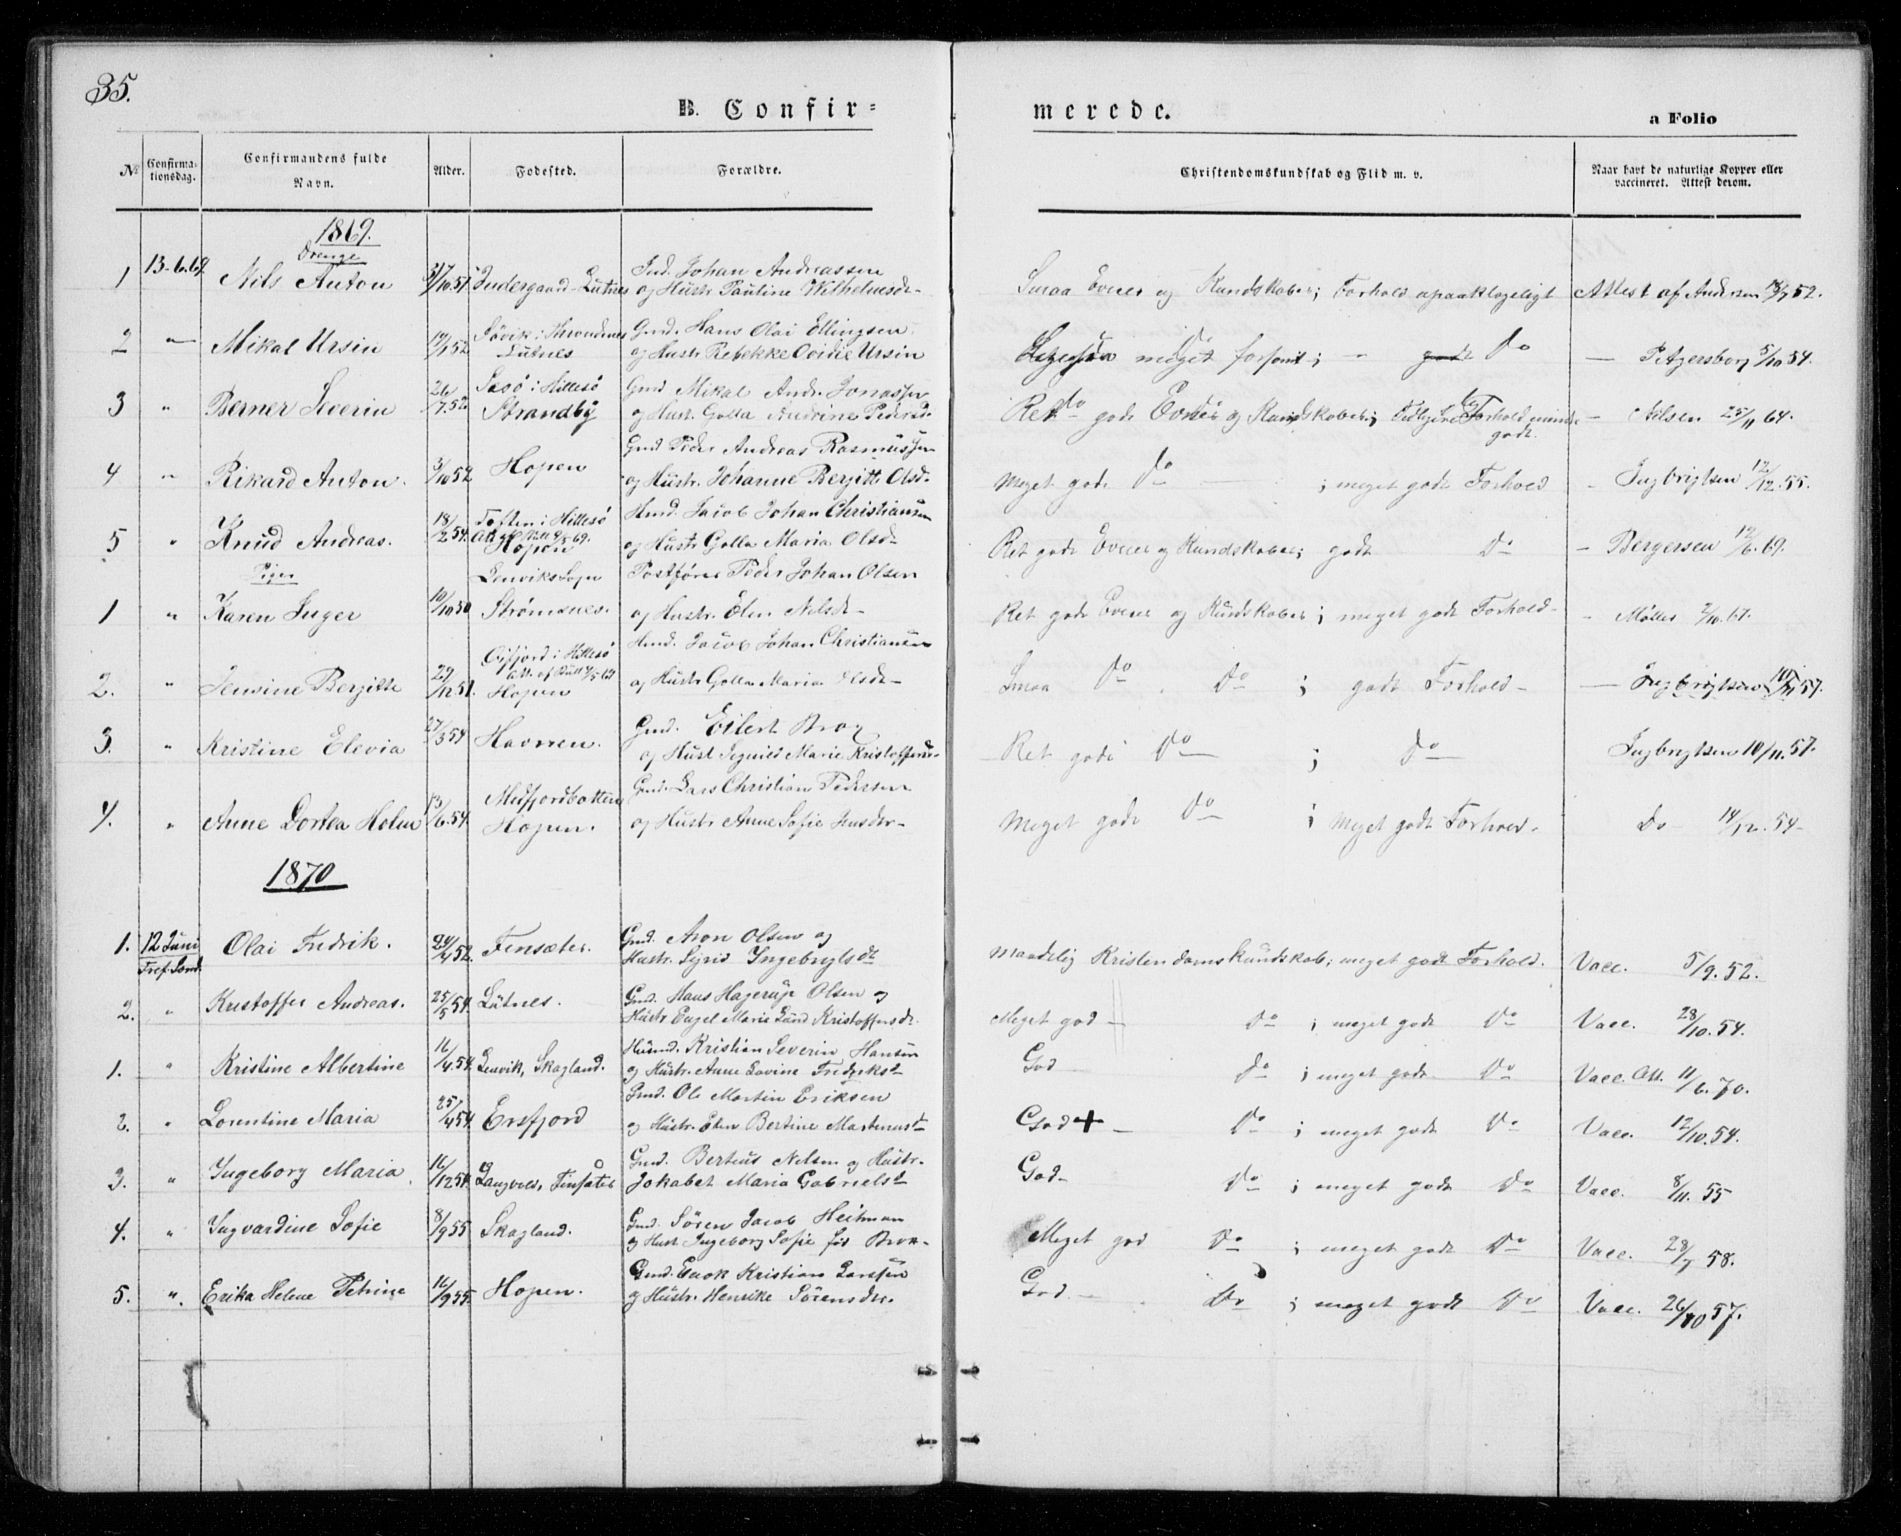 35.
B. Confir-
merede.
a Folio
No
Confirma-
tionsdag.
Confirmandens fulde
Navn.
Alder.
Fødested.
Forældre.
Christendomskundskab og Flid m. v.
Naar havt de naturlige Kopper eller
vaccineret. Attest derom.
1869.
Drenge
Gmd. Johan Andreassen
1 13-6.69. Nils Anton 10.51. Indergaard-Lutnes og Hustr Pauline Wilhelmsd- Smaa Evner og Kundskaber; Forhold upaaklageligt Attest af Andersen 52.
Gmd. Hans Olai Ellingsen
2 Mikal Ursin 52 Lutnes og Hustr Rebekke Ovidie Ursin meget forsømt; Do P. Agersborg 5/10 54.
Gmd Mikal Andr. Jonassen
3 " Berner Severin 26/7.52 Strandby og Hust. Golla Andrine Pedersd- Ret gode Evner og Kundskaber; Forhold mindre godt. - Nilsen 25/11 64.
Gmd Peder Andreas Rasmussen
4 " Rikard Anton. 3/10 52 Hopen og Hustr. Johanne Bergitte Olsd- Meget gode Do ; meget godt Forhold - Ingbrigtsen 12/12.55.
Toften i Hillesø
Hmd. Jacob Johan Christiansen
5 " Knud Andreas. 18/2 54. Hopen og Hustr Golla Maria Olsd- Ret gode Evner og Kundskaber; godt Do - Bergersen 12/6.69.
Piger
Lenviks Sogn
Postfører Peder Johan Olsen
1 " Karen Inger 10/10 50 Strømsnes. og Hustr. Elen Nilsd- Ret gode Evner og Kundskaber; meget godt Forhold- - Møller 7/10.67.
Øifjord i Hillesø
Hmd. Jacob Johan Christiansen
2. " Jensine Bergitte 29/12 51. Hopen og Hustr Golla Maria Olsd- Smaa Do Do ; godt Forhold- Ingbrigtsen 10/11 57.
Gmd. Eilert Brox
3. " Kristine Elevia 27/3 54 Havnen. og Hust Signild Marie Kristoffersd- Ret gode Do ; Do Ingbrigtsen 10/11.57.
Medfjordbotten
Gmd. Lars Christian Pedersen
4. " Anne Dortea Holm 13/6.54. Hopen. og Hustr Anne Sofie Jensdr- Meget gode Do ; meget godt Forhold. Do 14/12.54-
1870
1. 12 Juni Olai Fredrik. 24/4 52. Finsæter. Gmd. Aron Olsen og
Tref. Sønd. Hustr. Sigrid Ingebrigtsdt Maadelig Kristendomskundskab; meget godt Forhold. Vacc. 5/9.52.
2. " Kristoffer Andreas. 25/5 54. Lutnes. Gmd. Hans Hagerup Olsen og
Hustr. Engel Marie Lund Kristoffersdr. Meget god- Do ; meget godt Do Vacc. 28/10.54.
1. " Kristine Albertine 16/4.54. Lenvik, Skagland. Husmd. Kristian Severin Hansen
og Hustr. Anne Lovine Fredriksdt God Do ; meget godt Do Vacc. Att. 11/6.70.
Gmd. Ole Martin Eriksen
2. " Lorentine Maria 25/4 54. Ersfjord og Hustr. Elen Bertine Martinusdt God + - Do ; meget godt Do Vacc. 12/10.54.
3. " Ingeborg Maria. 16/12 54. Langvold, Finsæter Gmd. Bertus Nilsen og Hustr.
Jokabet Maria Gabrielsdt God- Do ; meget godt Do Vacc. 8/11.55
4. " Ingvardine Sofie 8/9 55 Skagland. Gmd. Sören Jacob Heitman
og Hust Ingeborg Sofie fød Brox- Meget god Do ; meget godt Do Vacc. 28/7 58.
5. " Erika Helene Petrine 16/9 55. Hopen. Gmd. Enok Kristian Larssen
og Hustr Henrike Sörensdr. God- Do ; meget godt Do Vacc. 26/10 57.